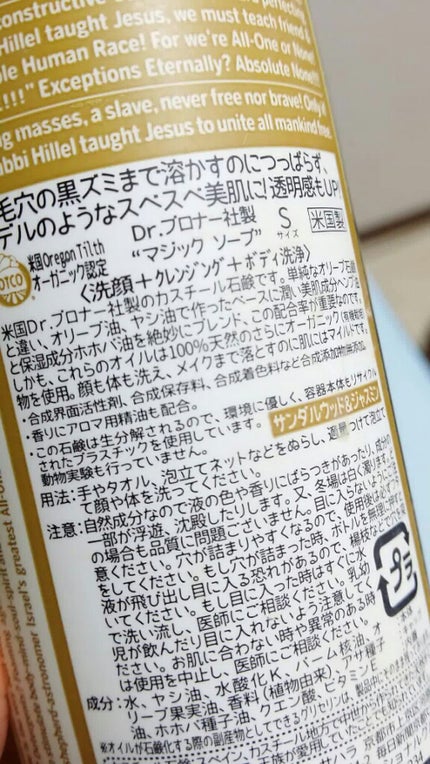 constructive
Hillel taught Jesus, we must teach friend &
ble Human Race! For we're All-One or None!
!!!" Exceptions Eternally? Absolute None!!!
masses, a slave, never free nor brave! Only if
bbi Hillel taught Jesus to unite all mankind free.
毛穴の黒ズミまで溶かすのにつっぱらず、
デルのようなスベスベ美肌に!透明感もUP!
米国Oregon Tilth
オーガニック認定
Dr.ブロナー社製
“マジック ソープ”
S
サイズ
米国製
〈洗顔+クレンジング+ボディ洗浄〉
米国Dr.ブロナー社製のカスチール石鹸です。単純なオリーブ石鹸
と違い、オリーブ油、ヤシ油で作ったベースに潤い美肌成分ヘンプ油
と保湿成分ホホバ油を絶妙にブレンド、この配合率が重要なのです。
しかも、これらのオイルは100%天然のさらにオーガニック(有機栽培)
物を使用。顔も体も洗え、メイクまで落とすのに肌にはマイルドです。
・合成界面活性剤、合成保存料、合成着色料など合成添加物無添加。
・香りにアロマ用精油も配合。
・この石鹸は生分解されるので、環境に優しく、容器本体もリサイクル
されたプラスチックを使用しています。
動物実験も行っていません。
サンダルウッド&ジャスミン
用法:手やタオル、泡立てネットなどをぬらし、適量つけて泡立て
て顔や体を洗ってください。
注意:自然成分なので液の色や香りにばらつきがあったり、成分の
一部が浮遊、沈殿したりします。又、冬場は白く濁ります
の場合も品質に問題ございません。目に入らないよう
意ください。穴が詰まりやすくなるので、使用後は必ず
をしてください。もし穴が詰まった時、ボトルを無理に
液が飛び出し目に入る恐れがあるので、楊枝などで
いてください。もし目に入った時はすぐに水
で洗い流し、医師にご相談ください。乳幼
児が飲んだり目に入れないよう注意してく
ださい。お肌に合わない時や異常のある時
は使用を中止し、医師にご相談ください。
プラ
成分:水、ヤシ油、水酸化K、パーム核油、オ
リーブ果実油、香料(植物由来)、アサ種子
油、ホホバ種子油、クエン酸、ビタミンE
※オイルが石鹸化する際の副産物としてできるグリセリンは、製品中にそのまま
スペイン、カスチール地方で中世から
族が愛用していた